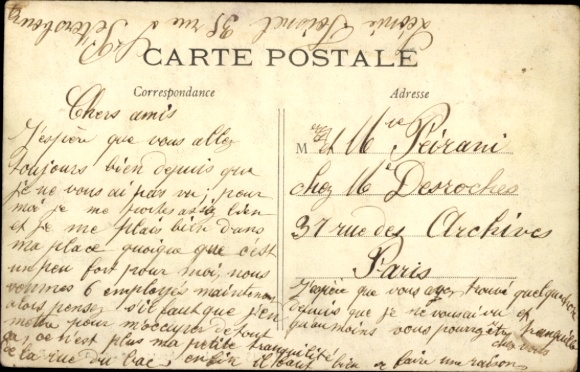 CARTE POSTALE
Correspondance
Adresse
Chers amis
J'espère que vous allez
toujours bien depuis que
je ne vous ai pas vu; pour
moi je me porte assez bien
et je me plais bien dans
ma place quoique que c'est
un peu fort pour moi, nous
sommes 6 employés maintenant
alors pensez s'il faut que j'en
mette pour m'occuper de tout
ça, ce n'est plus ma petite tranquilité
de la rue du bac, enfin il faut bien se faire une raison,
M et Mme Peirani
chez Me Desroches
37 rue des Archives
Paris
J'espère que vous avez trouvé quelqu'un
depuis que je ne vous ai vu et
qu'au moins vous pourrez être tranquille
chez vous
35 rue